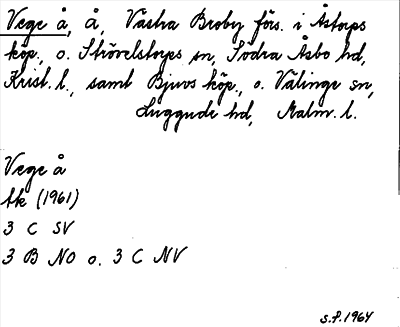 Vege å, å, Västra Broby förs. i Åstorps
köp., o. Strövelstorps sn, Södra Åsbo hd,
Krist. l., samt Bjuvs köp., o. Välinge sn,
Luggude hd, Malm. l.
Vege å
tk (1961)
3 C SV
3 B NO o. 3 C NV
S.F. 1964